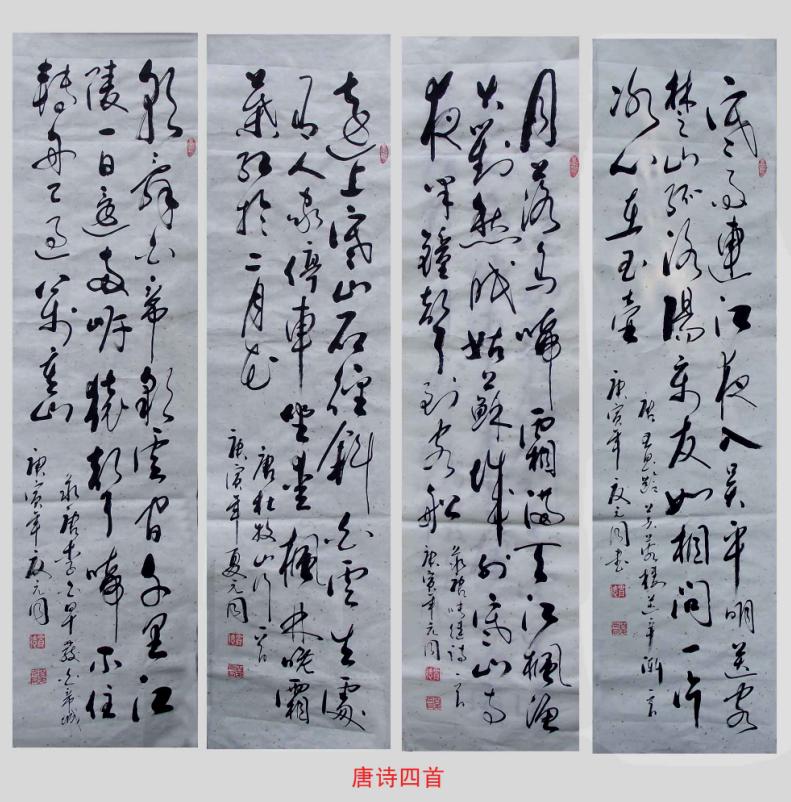 寒雨連江夜入吴平明送客
楚山孤洛陽亲友如相问一片
冰心在玉壺
唐王昌龄芙蓉楼送辛渐一首
庚寅年夏元
月落乌啼霜满天江枫渔
火對愁眠姑蘇城外寒山寺
夜半鐘声到客船
录唐张继诗一首
庚寅年元
远上寒山石徑斜白云生處
有人家停車坐爱楓林晚霜
葉红於二月花
唐杜牧山行一首
庚寅年夏元
朝辞白帝彩云间千里江
陵一日还两岸猿声啼不住
轉舟已过万重山
录唐李白早發白帝城
庚寅年夏元
唐诗四首